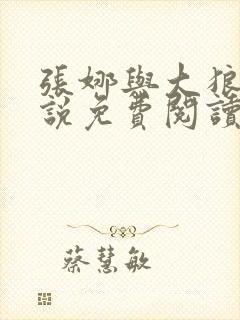 張娜與大狼
說免費閱讀
蔡慧敏